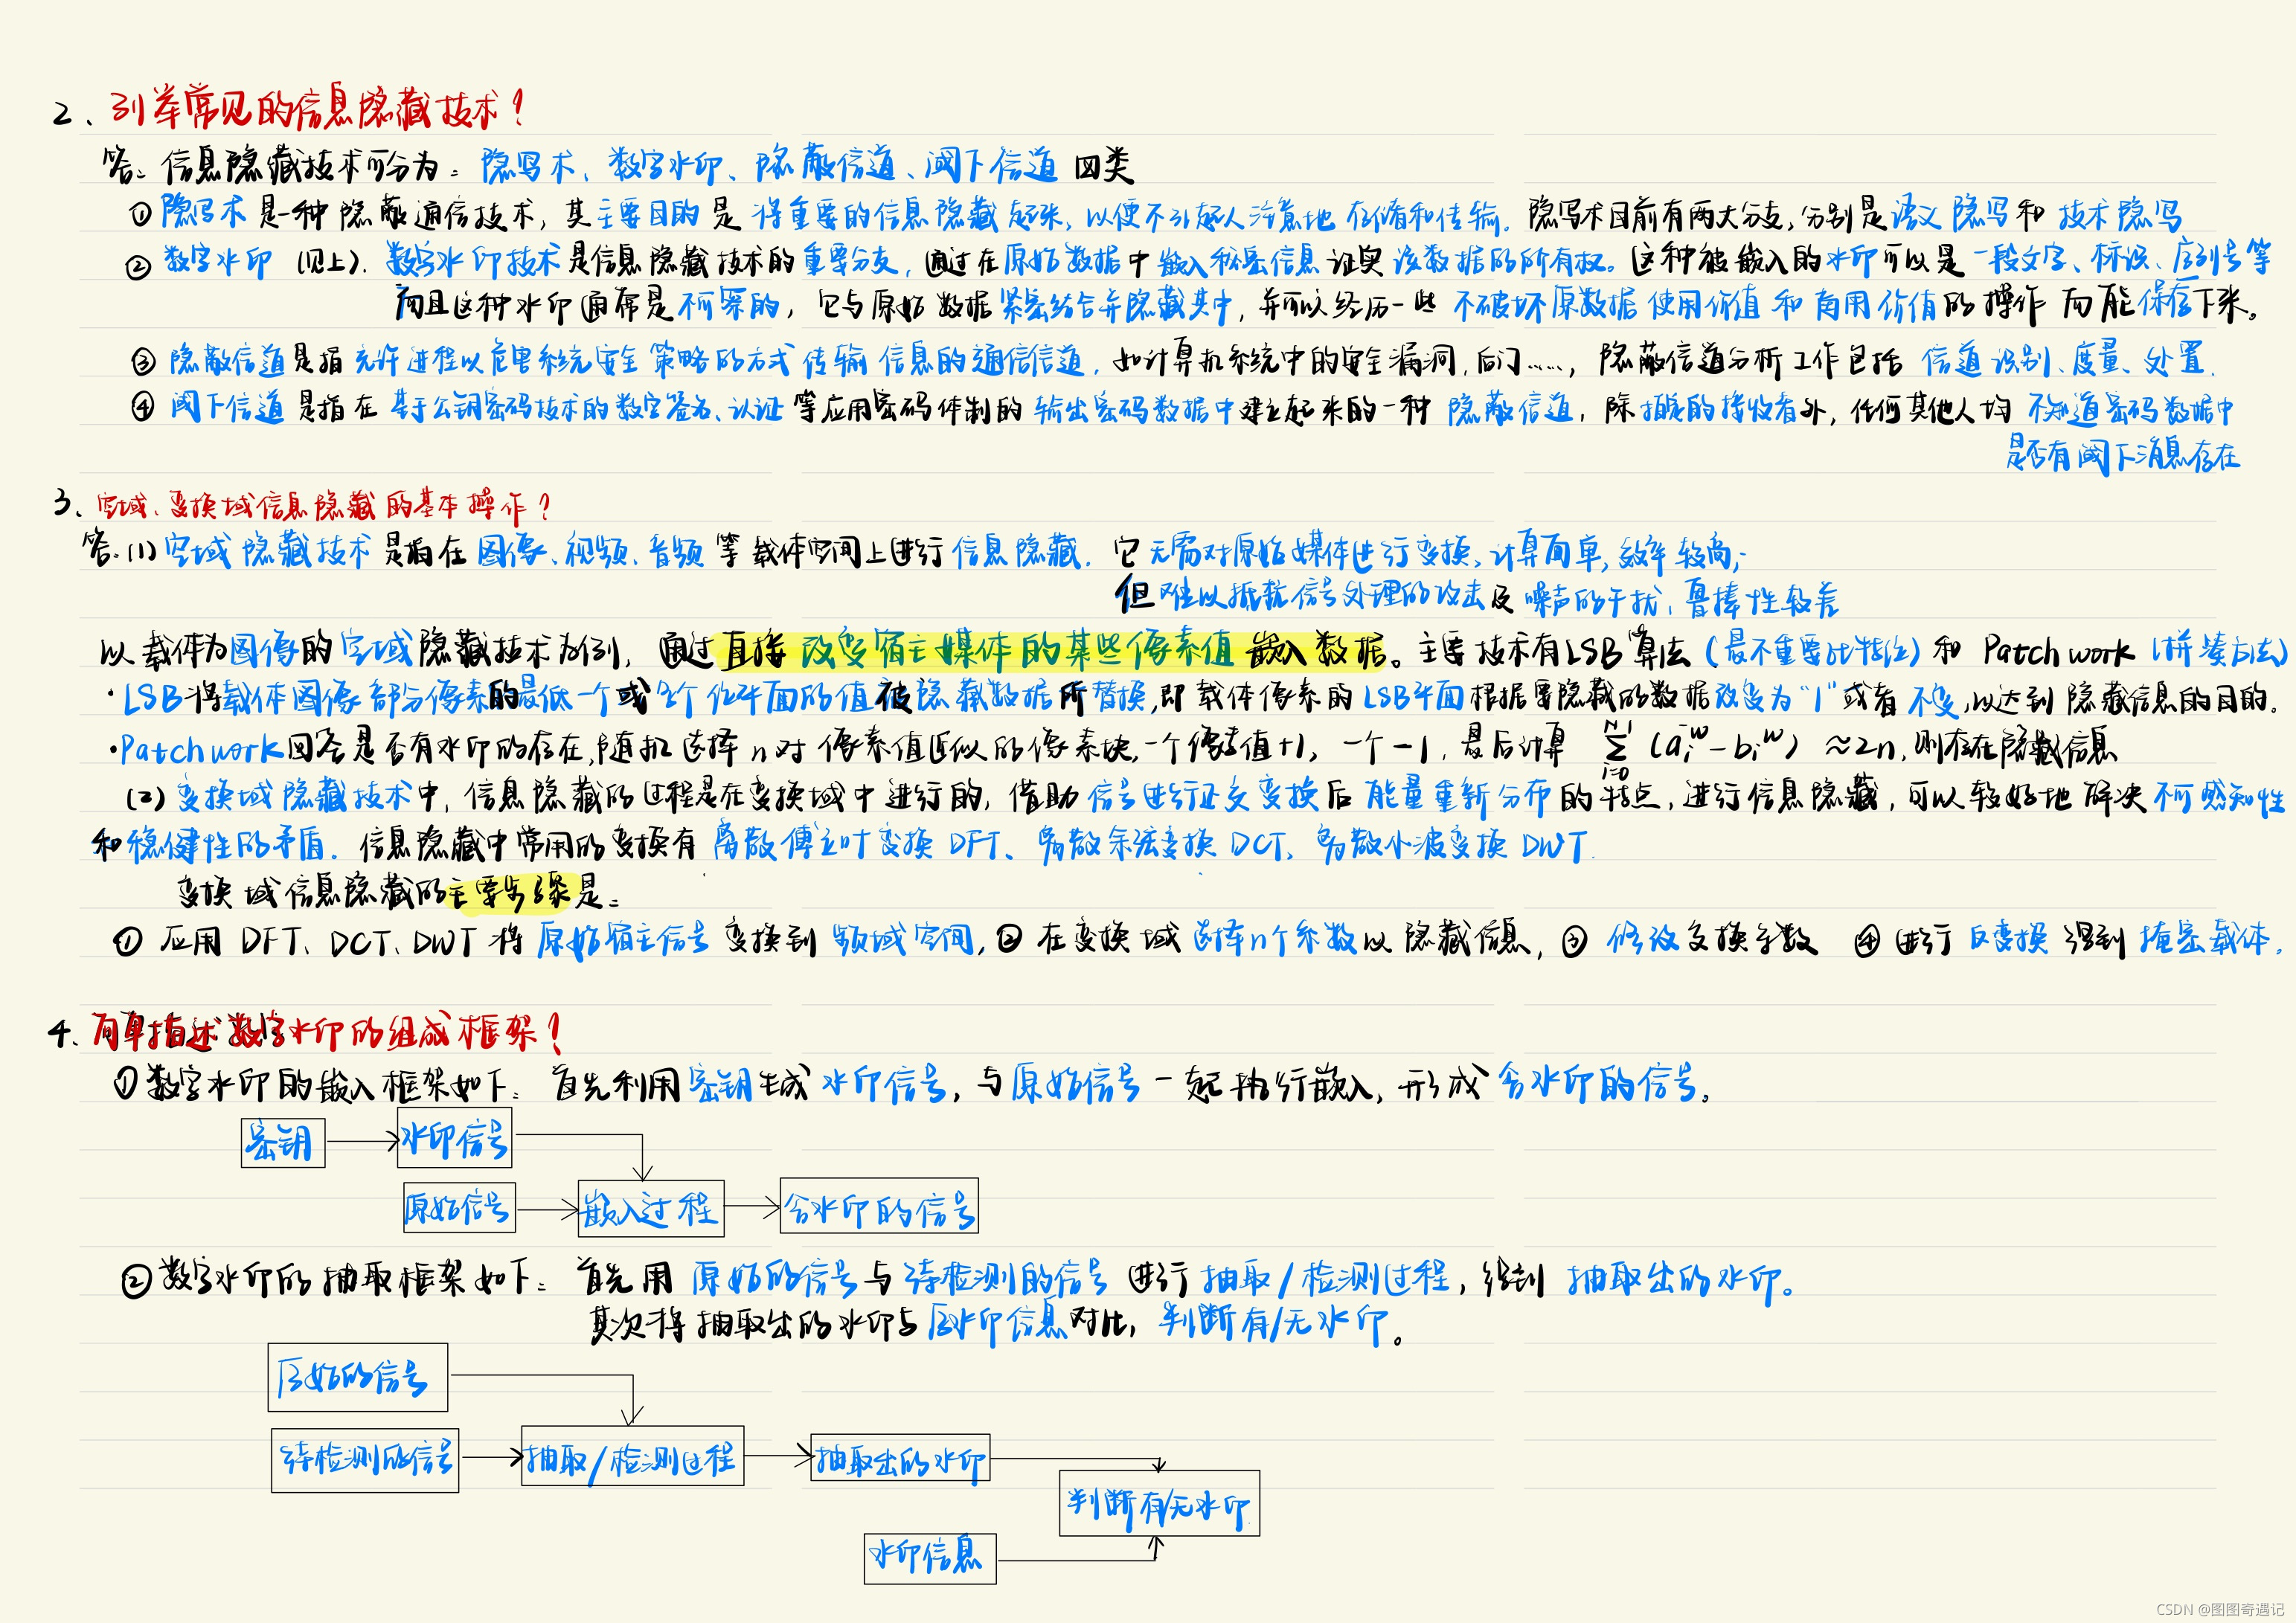 2、列举常见的信息隐藏技术？
答：信息隐藏技术可分为：隐写术、数字水印、隐蔽信道、阈下信道 四类
① 隐写术 是一种隐蔽通信技术，其主要目的是 将重要的信息隐藏起来，以便不引起人注意地 存储和传输。隐写术目前有两大分支，分别是语义隐写 和 技术隐写
② 数字水印（见上）. 数字水印技术是信息隐藏技术的重要分支，通过在原始数据中嵌入秘密信息 证实该数据的所有权。这种被嵌入的水印可以是一段文字、标识、序列号等
而且这种水印通常是不可察的，它与原始数据紧密结合并隐藏其中，并可以经历一些 不破坏原数据使用价值 和 商用价值的操作 而能保存下来。
③ 隐蔽信道是指 允许进程以危害系统安全策略的方式传输信息的通信信道，如计算机系统中的安全漏洞，后门……，隐蔽信道分析工作包括 信道识别、度量、处置.
④ 阈下信道 是指在 基于公钥密码技术的数字签名、认证 等应用密码体制的 输出密码数据中建立起来的一种 隐蔽信道，除指定的接收者外，任何其他人均 不知道密码数据中
是否有阈下消息存在
3、空域、变换域信息隐藏的基本操作？
答：(1) 空域隐藏技术 是指在 图像、视频、音频 等载体空间上进行信息隐藏. 它无需对原始媒体进行变换，计算简单，效率较高；
但 难以抵抗信号处理的攻击及噪声的干扰，鲁棒性较差
以载体为图像的空域隐藏技术为例，通过直接 改变宿主媒体的某些像素值 嵌入数据。主要技术有LSB算法（最不重要比特位）和 Patchwork（拼凑方法）
·LSB将载体图像部分像素的最低一个或多个位平面的值被隐藏数据所替换，即载体像素的LSB平面根据要隐藏的数据改变为“1”或者 不变，以达到隐藏信息的目的。
·Patchwork回答是否有水印的存在，随机选择n对像素值近似的像素块，一个像素值+1，一个-1，最后计算 ∑ᵢ₌₀ᴺ⁻¹（aᵢʷ-bᵢʷ）≈2n，则存在隐藏信息
(2) 变换域隐藏技术中，信息隐藏的过程是在变换域中进行的，借助信号进行正交变换后 能量重新分布的特点，进行信息隐藏，可以较好地解决不可感知性
和稳健性的矛盾. 信息隐藏中常用的变换有 离散傅立叶变换DFT、离散余弦变换DCT、离散小波变换DWT.
变换域信息隐藏的主要步骤是：
① 应用 DFT、DCT、DWT 将 原始宿主信号 变换到 频域空间，② 在变换域 选择n个系数以隐藏信息，③ 修改变换系数 ④ 进行 反变换 得到 掩密载体.
4、简单描述数字水印的组成框架？
① 数字水印的嵌入框架如下：首先利用密钥生成 水印信号，与 原始信号 一起执行嵌入，形成 含水印的信号。
密钥 水印信号
原始信号 嵌入过程 含水印的信号
② 数字水印的抽取框架如下：首先用 原始的信号与待检测的信号 进行 抽取/检测过程，得到 抽取出的水印。
其次将抽取出的水印与原水印信息对比，判断有/无水印。
原始的信号
待检测的信号 抽取/检测过程 抽取出的水印
判断有/无水印
水印信息
CSDN @图图奇遇记